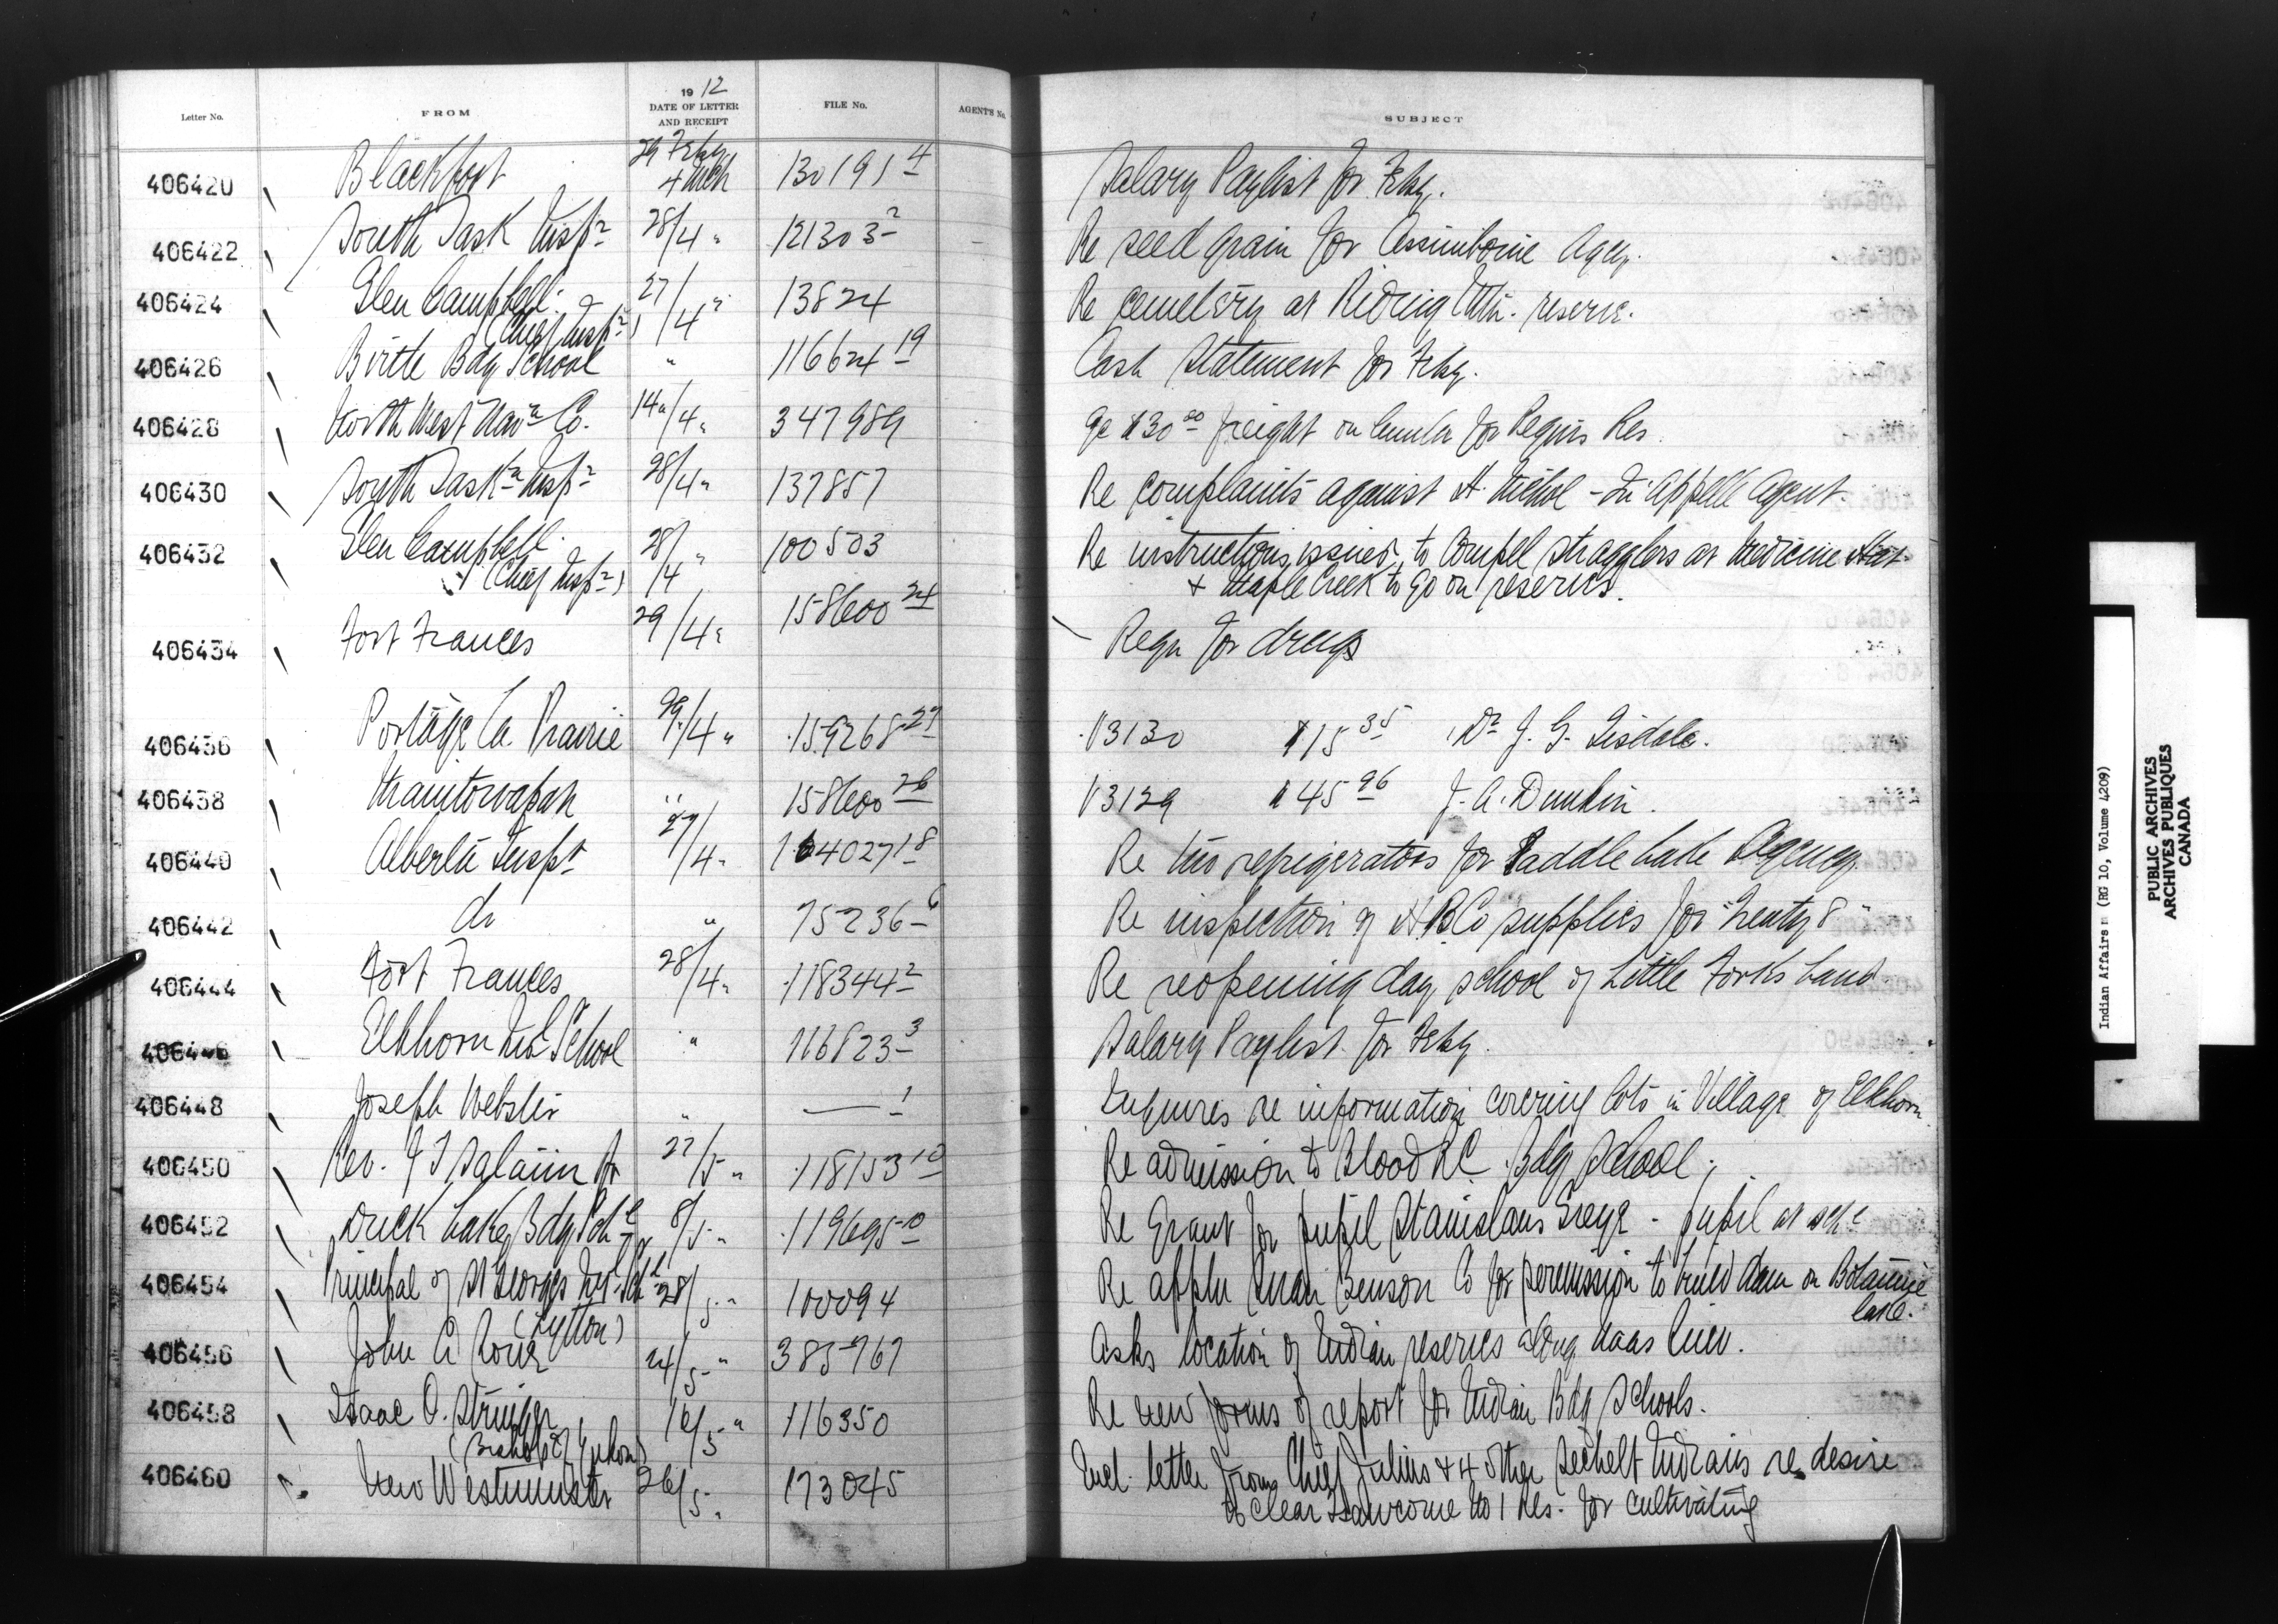 19 12
Letter No. FROM DATE OF LETTER AND RECEIPT FILE No. AGENT'S No. SUBJECT
406420 Blackfoot 29 Feby 4 Mch 130191-4 Salary Paylist for Feby.
406422 South Sask Insp r 28/4 " 121303-2 Re seed grain for Assiniboine Agcy.
406424 Glen Campbell 27/4 " 13824 Re cemetery at Riding Mtn. reserve.
(Chief Insp r)
406426 Birtle Bdg School " 116624-19 Cash Statement for Feby.
406428 North West Nav n Co. 14/4 " 347989 Re $30 00 freight on lumber for Pequis Res
406430 South Sask n Insp r 28/4 " 137857 Re complaints against H. Nichol - Qu'Appelle Agent.
406432 Glen Campbell 28/4 " 100503 Re instructions issued to compel stragglers at Medicine Hat
(Chief Insp r) & Maple Creek to go on reserves.
406434 Fort Frances 29/4 " 158600-24 Reqn for drugs
406436 Portage la Prairie 29/4 " 159268-27 V3130 $15 35 Dr J. G. Tisdale.
406438 Manitowapah " 158600-26 V3129 $45 96 J. A. Dunkin.
406440 Alberta Insp r 27/4 " 164027-18 Re two refrigerators for Saddle Lake Agency
406442 do " 75236-6 Re inspection of H.B.Co supplies for Treaty 8
406444 Fort Frances 28/4 " 118344-2 Re reopening day school of Little Forks band
406446 Elkhorn Ind l School " 116823-3 Salary Paylist for Feby.
406448 Joseph Webster " — 1 Enquires re information covering lots in Village of Elkhorn
406450 Rev. J T Salaün 27/5 " 118153-10 Re admission to Blood R.C. Bdg School
406452 Duck Lake Bdg Sch l 8/5 " 119695-10 Re Grant for pupil Stanislaus - pupil at sch l
406454 Principal of St Georges Ind l Sch l 28/5 " 100094 Re appln Benson Co for permission to build dam on Botanie
(Lytton) lake.
406456 John A 24/5 " 385767 Asks location of Indian reserves along line.
406458 Isaac O. Stringer 16/5 " 116350 Re new forms of report for Indian Bdg Schools.
(Bishop of Yukon)
406460 New Westminster 26/5 " 173045 Encl. letter from Chief Julius & 4 other Sechelt Indians re desire
to clear Tsawcome No 1 Res. for cultivating
Indian Affairs (RG 10, Volume 4209)
PUBLIC ARCHIVES
ARCHIVES PUBLIQUES
CANADA